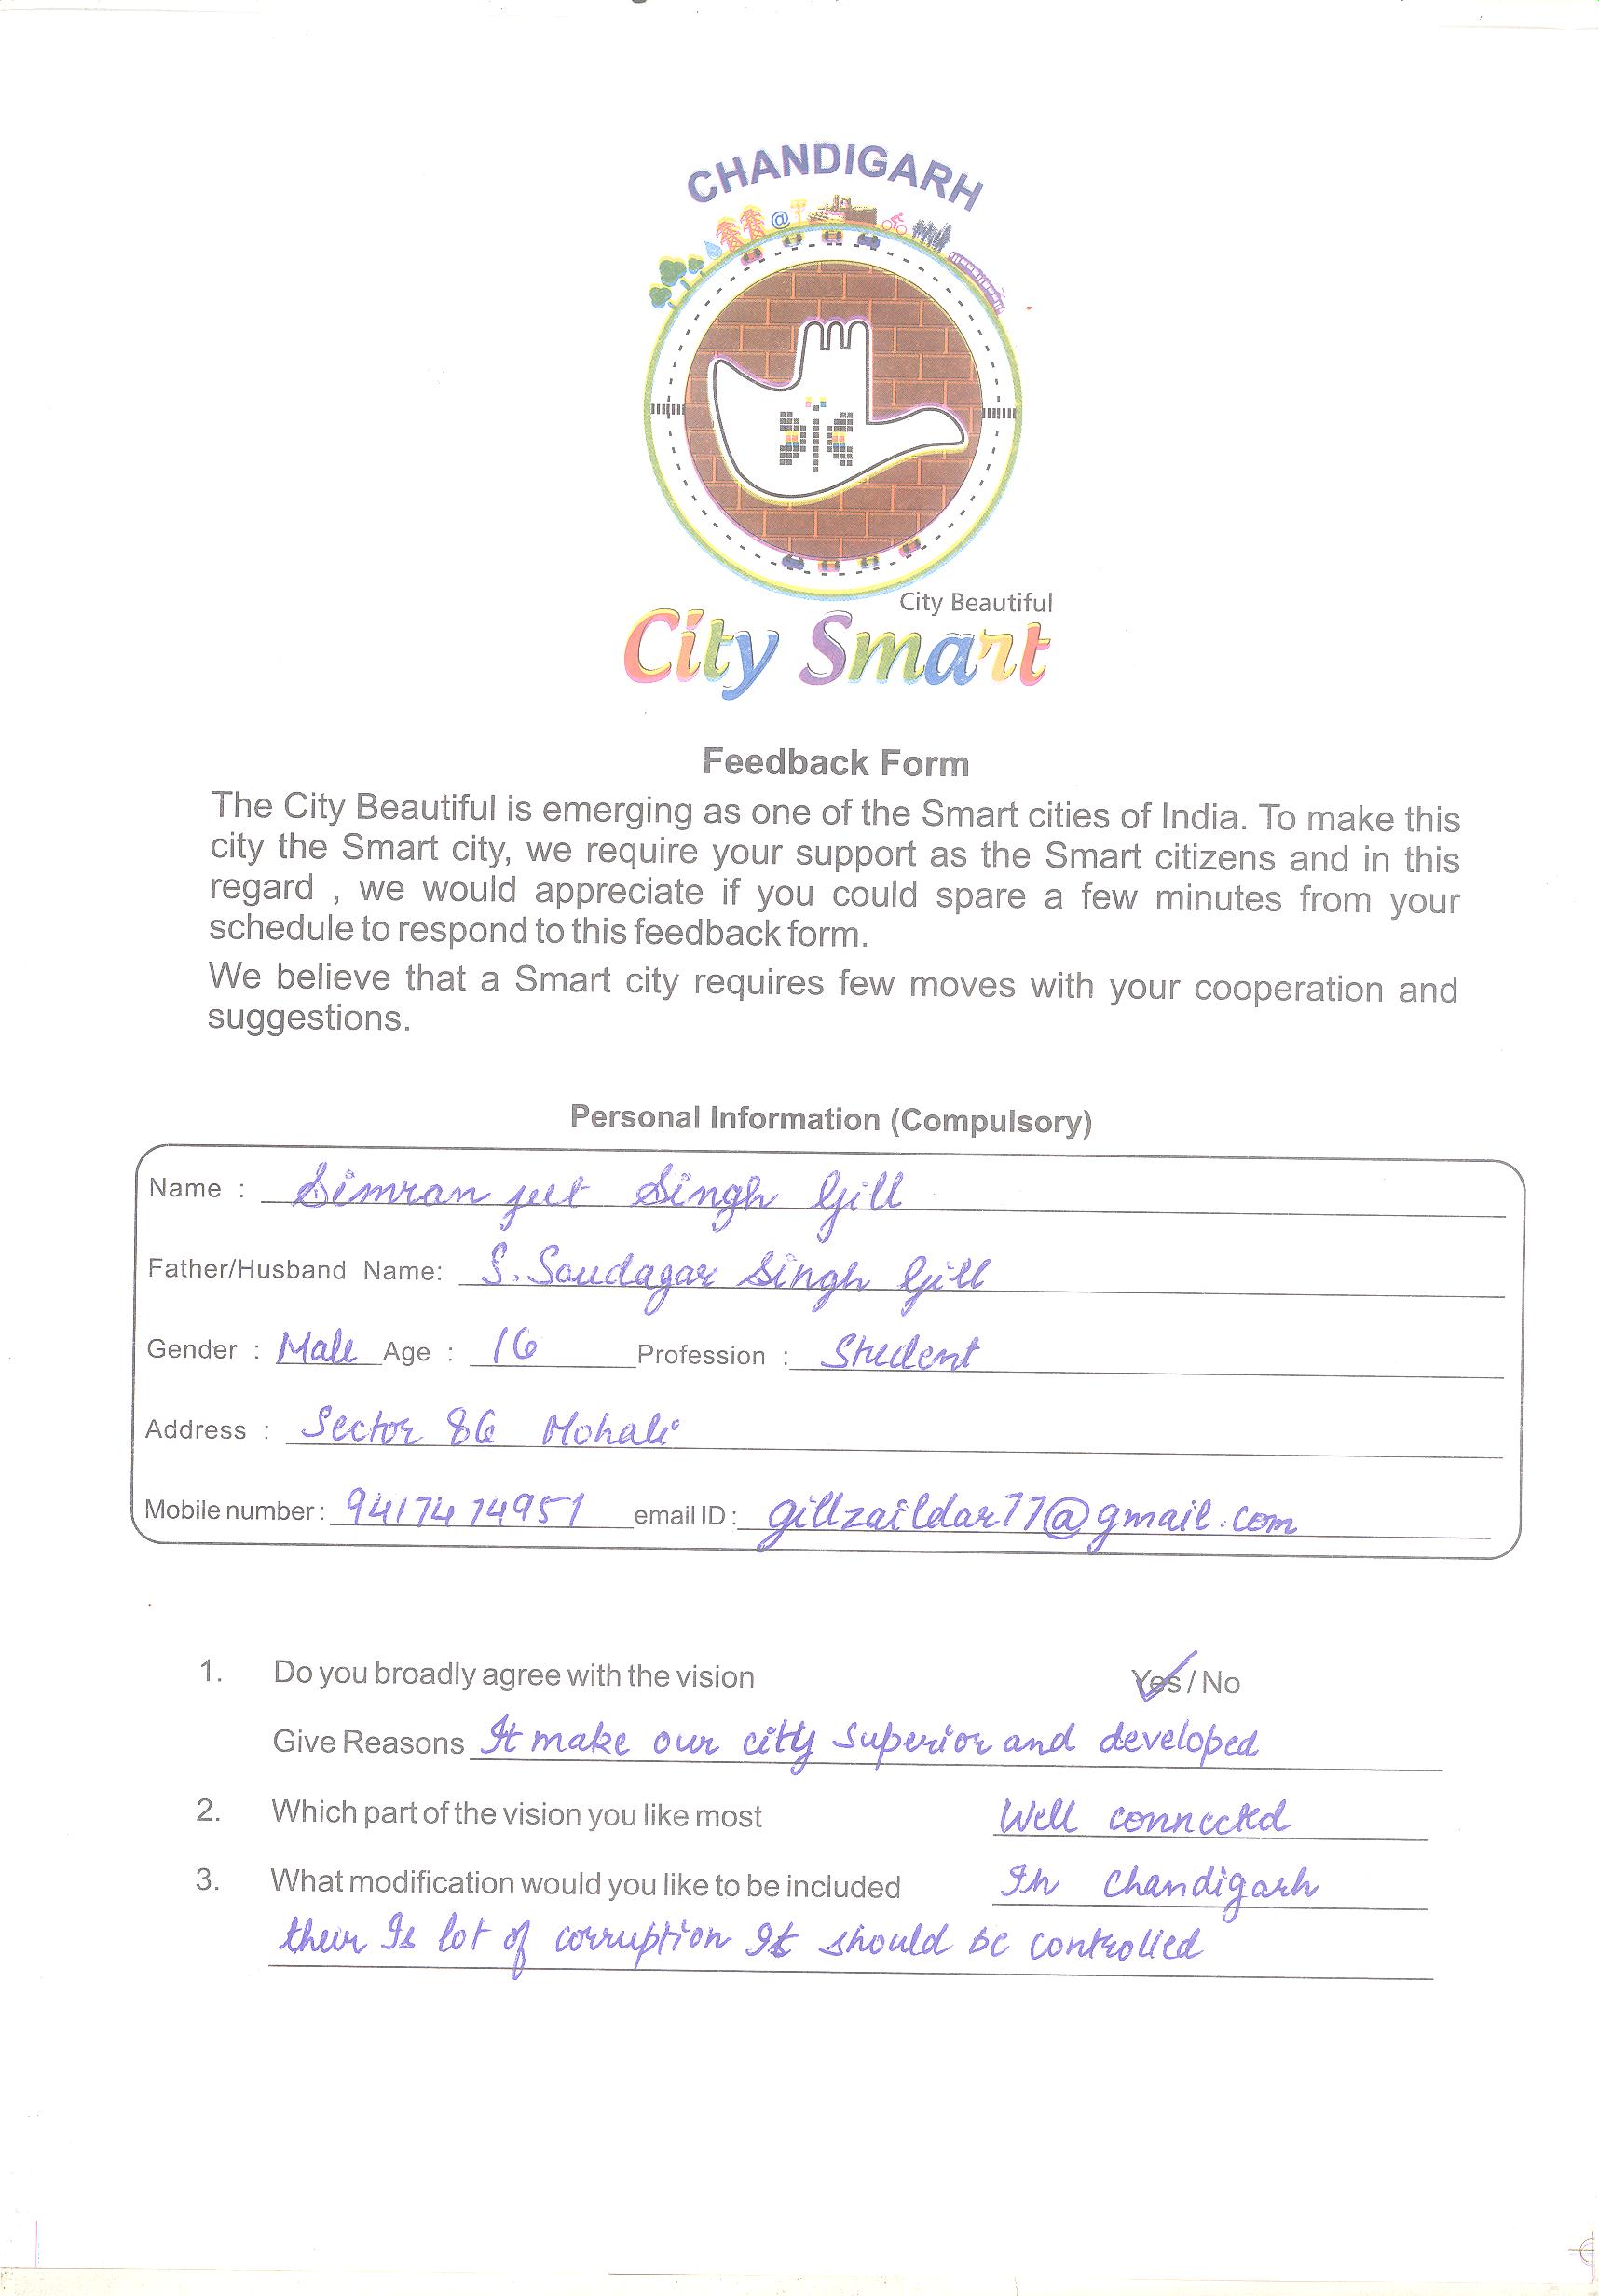 CHANDIGARH
@
City Beautiful
City Smart
Feedback Form
The City Beautiful is emerging as one of the Smart cities of India. To make this
city the Smart city, we require your support as the Smart citizens and in this
regard , we would appreciate if you could spare a few minutes from your
schedule to respond to this feedback form.
We believe that a Smart city requires few moves with your cooperation and
suggestions.
Personal Information (Compulsory)
Name : Simran jeet Singh Gill
Father/Husband Name: S. Soudagar Singh Gill
Gender : Male Age : 16 Profession : Student
Address : Sector 86 Mohali
Mobile number : 9417474951 email ID : gillzaildar77@gmail.com
1. Do you broadly agree with the vision Yes / No
Give Reasons It make our citty Superior and developed
2. Which part of the vision you like most Well connected
3. What modification would you like to be included In Chandigarh
their Is lot of corruption It should be controlled